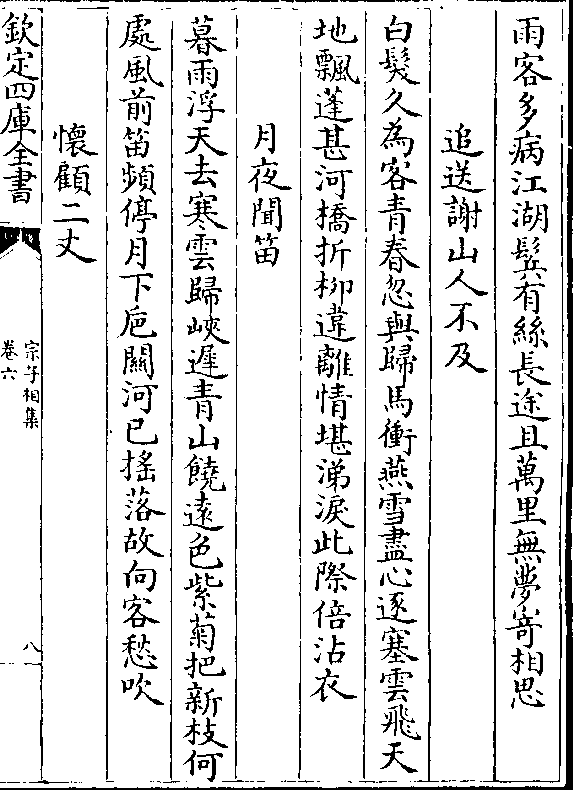 雨客多病江湖鬂有絲長途且萬里無夢寄相思
追送謝山人不及
白髮久為客青春忽與歸馬衝燕雪盡心逐塞雲飛天
地飄蓬甚河橋折柳違離情堪涕淚此際倍沾衣
月夜聞笛
暮雨浮天去寒雲歸峽遲青山饒遠色紫菊把新枝何
處風前笛頻停月下巵關河已搖落故向客愁吹
懷顧二丈
欽定四庫全書
宗子相集
卷六
八